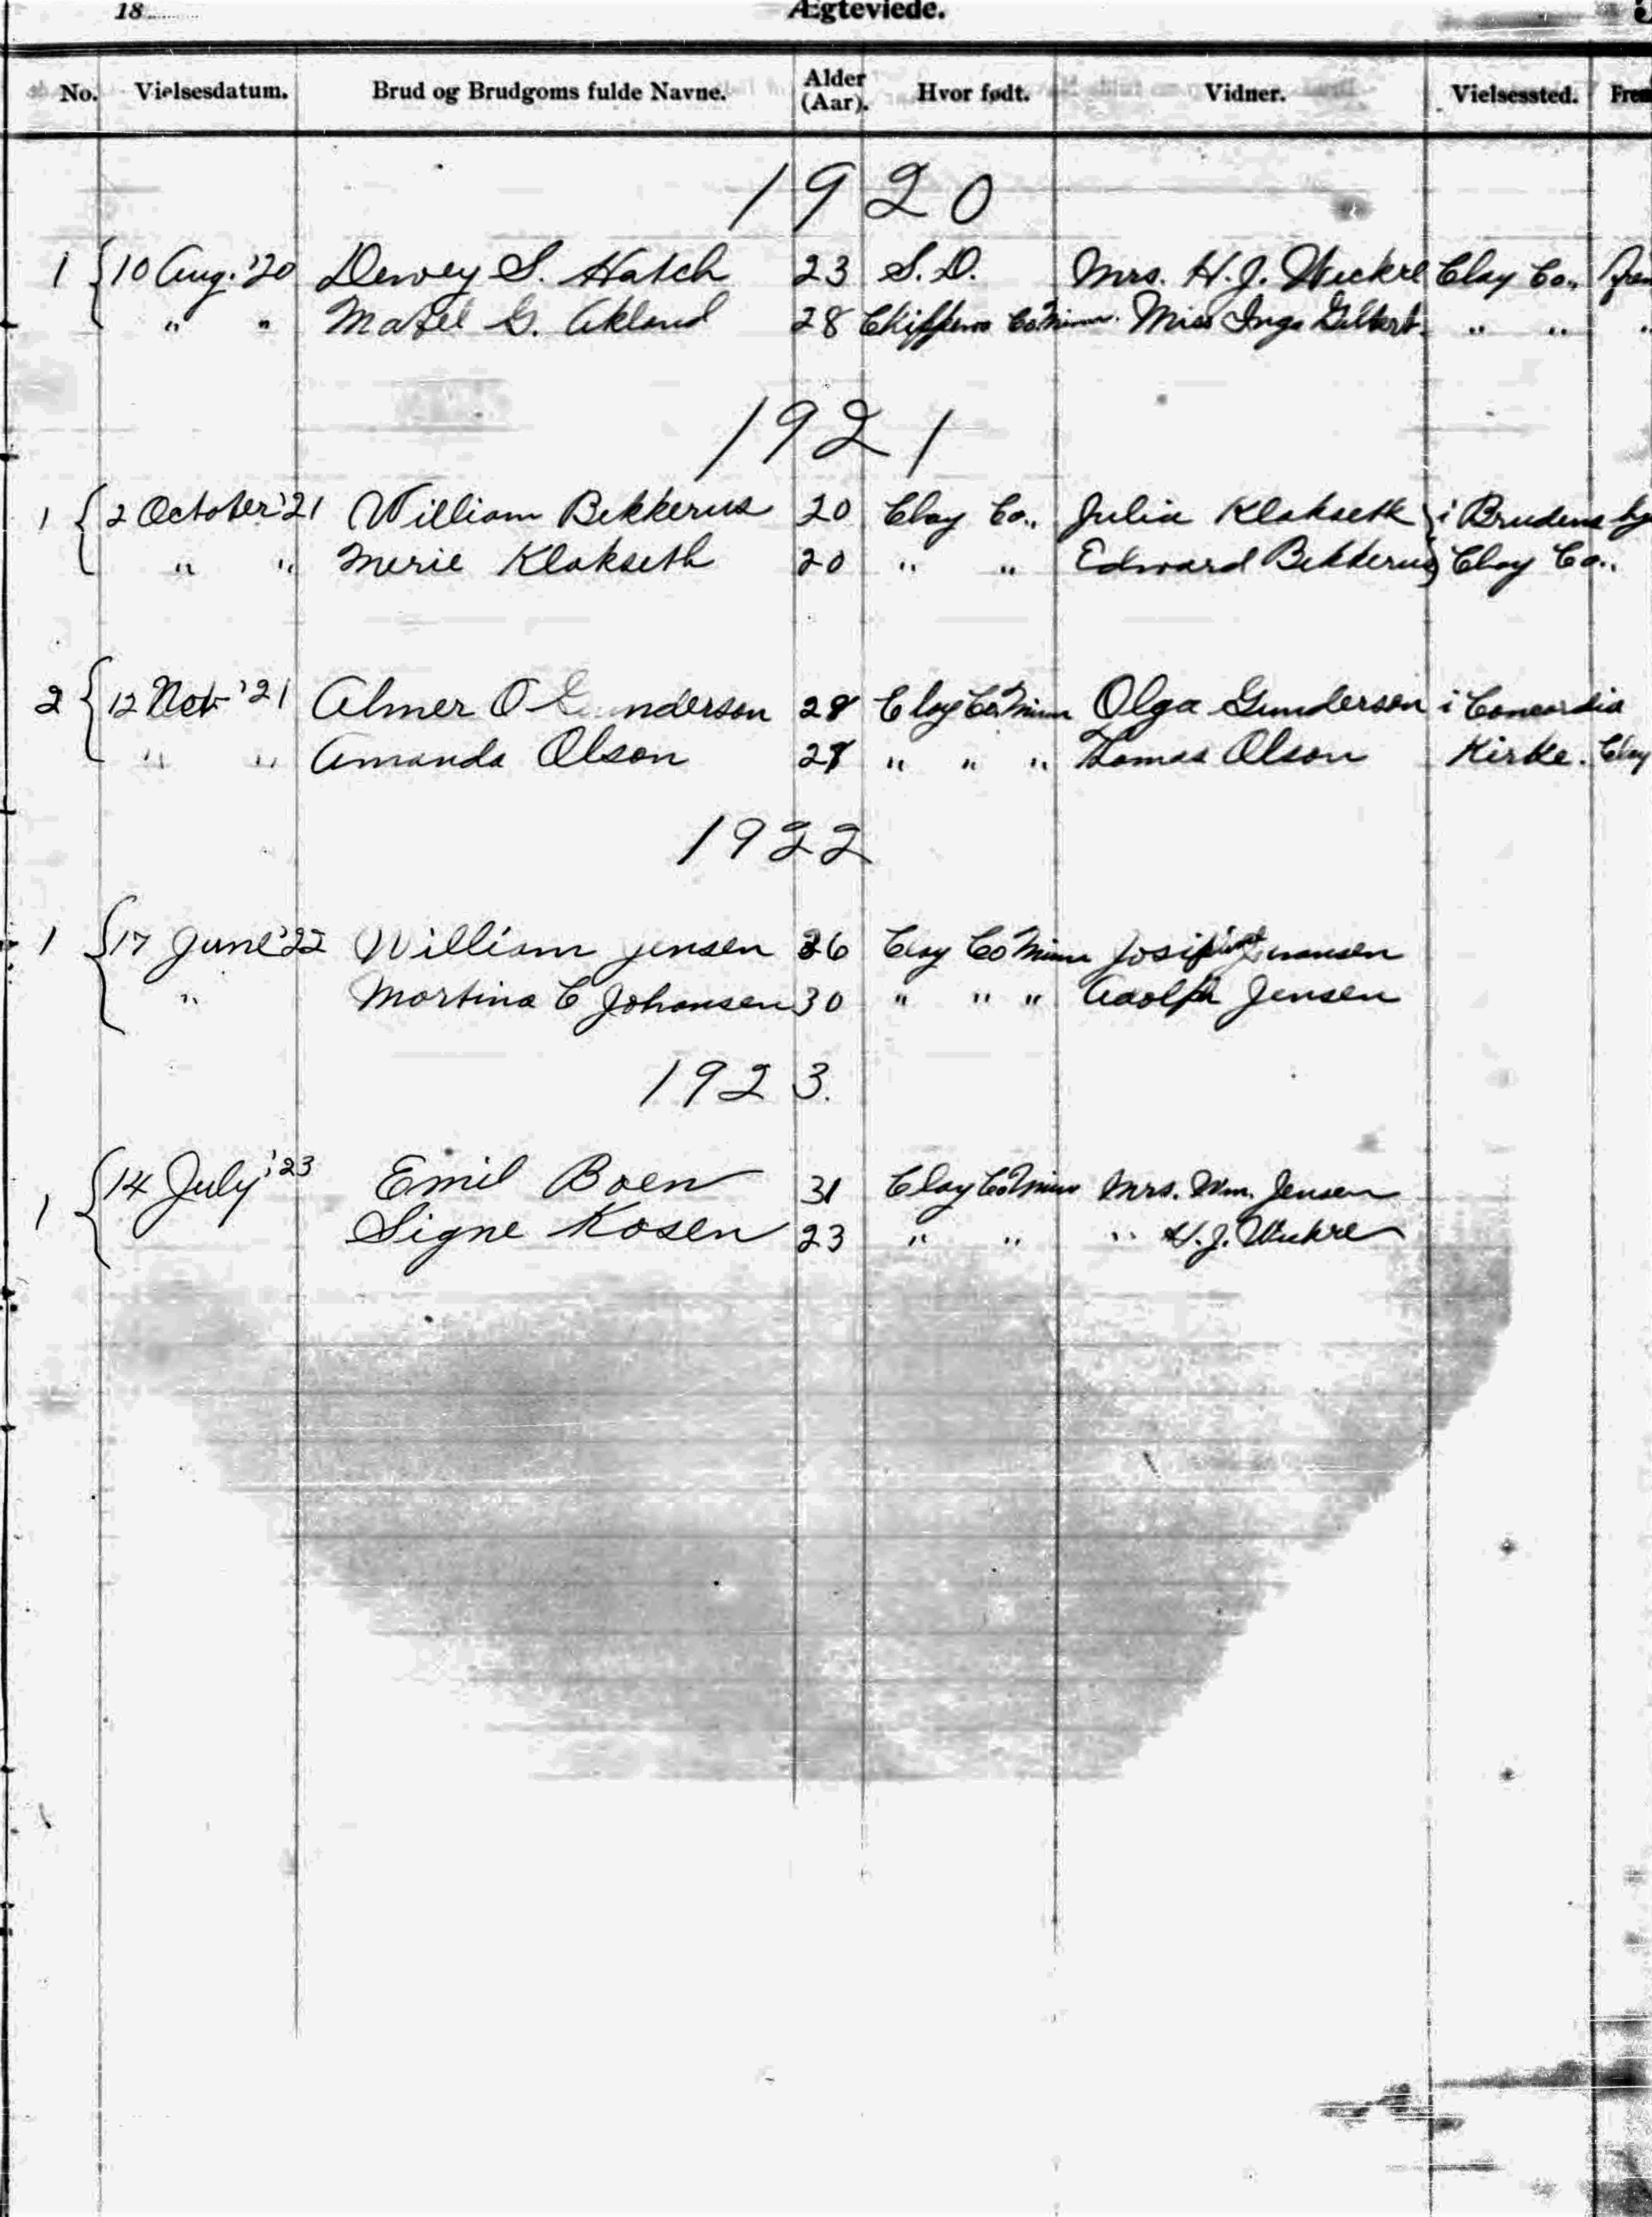 18
Ægteviede.
No. Vielsesdatum. Brud og Brudgoms fulde Navne. Alder (Aar). Hvor født. Vidner. Vielsessted.
1920
1 10 Aug. '20 Dewey S. Hatch 23 S. D. Mrs. H. J. Wickre Clay Co.,
" " Mabel G. Akland 28 Co Minn. Miss Inga Gilbert. " "
1921
1 2 October '21 William Bekkerus 20 Clay Co., Julia Klakseth i Brudens
" " Merie Klakseth 20 " " Edward Bekkerus Clay Co.,
2 12 Nov '21 Almer O Gunderson 28 Clay Co Minn Olga Gunderson i Concordia
" " Amanda Olson 28 " " " Thomas Olson Kirke. Clay
1922
1 17 June '22 William Jensen 26 Clay Co Minn
" Martina C Johansen 30 " " " Adolph Jensen
1923.
1 14 July '23 Emil Boen 31 Clay Co Minn Mrs. Wm. Jensen
Signe Rosen 23 " " " H. J. Wickre